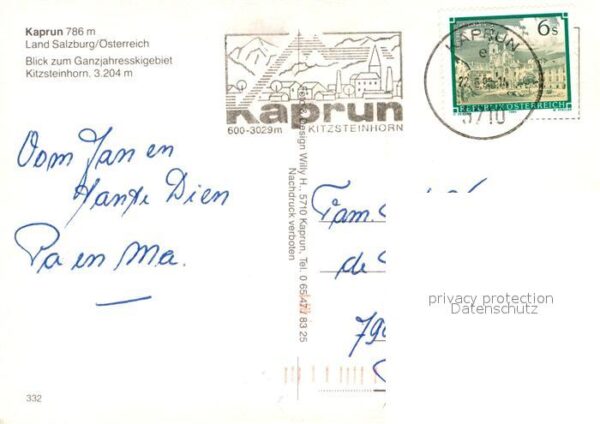 Kaprun 786 m
Land Salzburg/Österreich
Blick zum Ganzjahresskigebiet
Kitzsteinhorn. 3.204 m
Kaprun
600-3029m KITZSTEINHORN
6s
REPUBLIK ÖSTERREICH
KAPRUN
5710
Oom Jan en
Tante Dien
Pa en Ma.
Design Willy H., 5710 Kaprun, Tel. 0 65 47 / 83 25
Nachdruck verboten
Fam.
de
790
privacy protection
Datenschutz
332